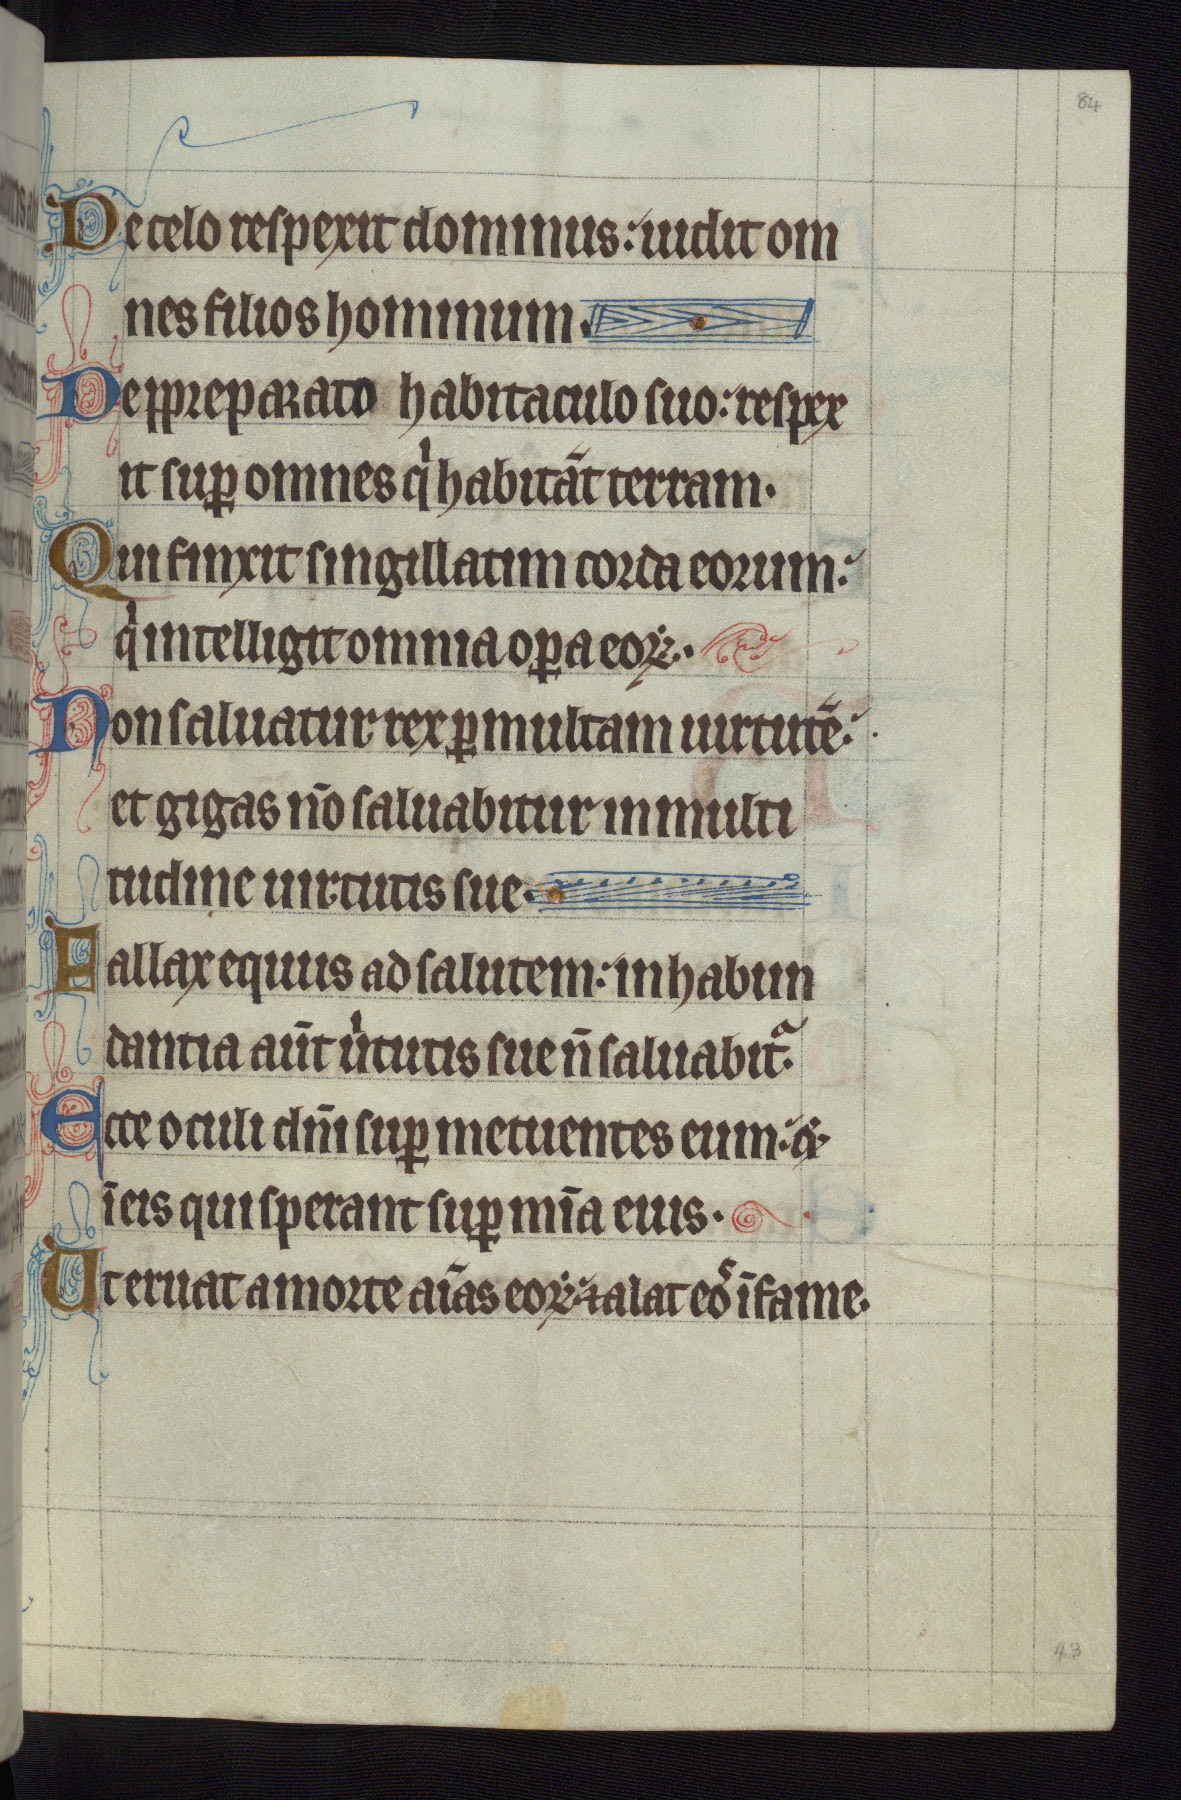 84
De celo respexit dominus: uidit om
nes filios hominum.
De ppreparato habitaculo suo: respex
it suꝑ omnes qͥ habitāt terram.
Qui finxit singillatim corda eorum:
qͥ intelligit omnia oꝑa eoꝝ.
Non saluatur rex ꝑ multam uirtutē:
et gigas nō saluabitur in multi
tudine uirtutis sue.
Fallax equus ad salutem: in habun
dantia aūt uͥtutis sue n̄ saluabitᷓ.
Ecce oculi dn̄i suꝑ metuentes eum: &
ī eis qui sperant suꝑ mīa eius.
Ut eruat a morte aīas eoꝝ: ⁊ alat eoˢ ī fame.
43